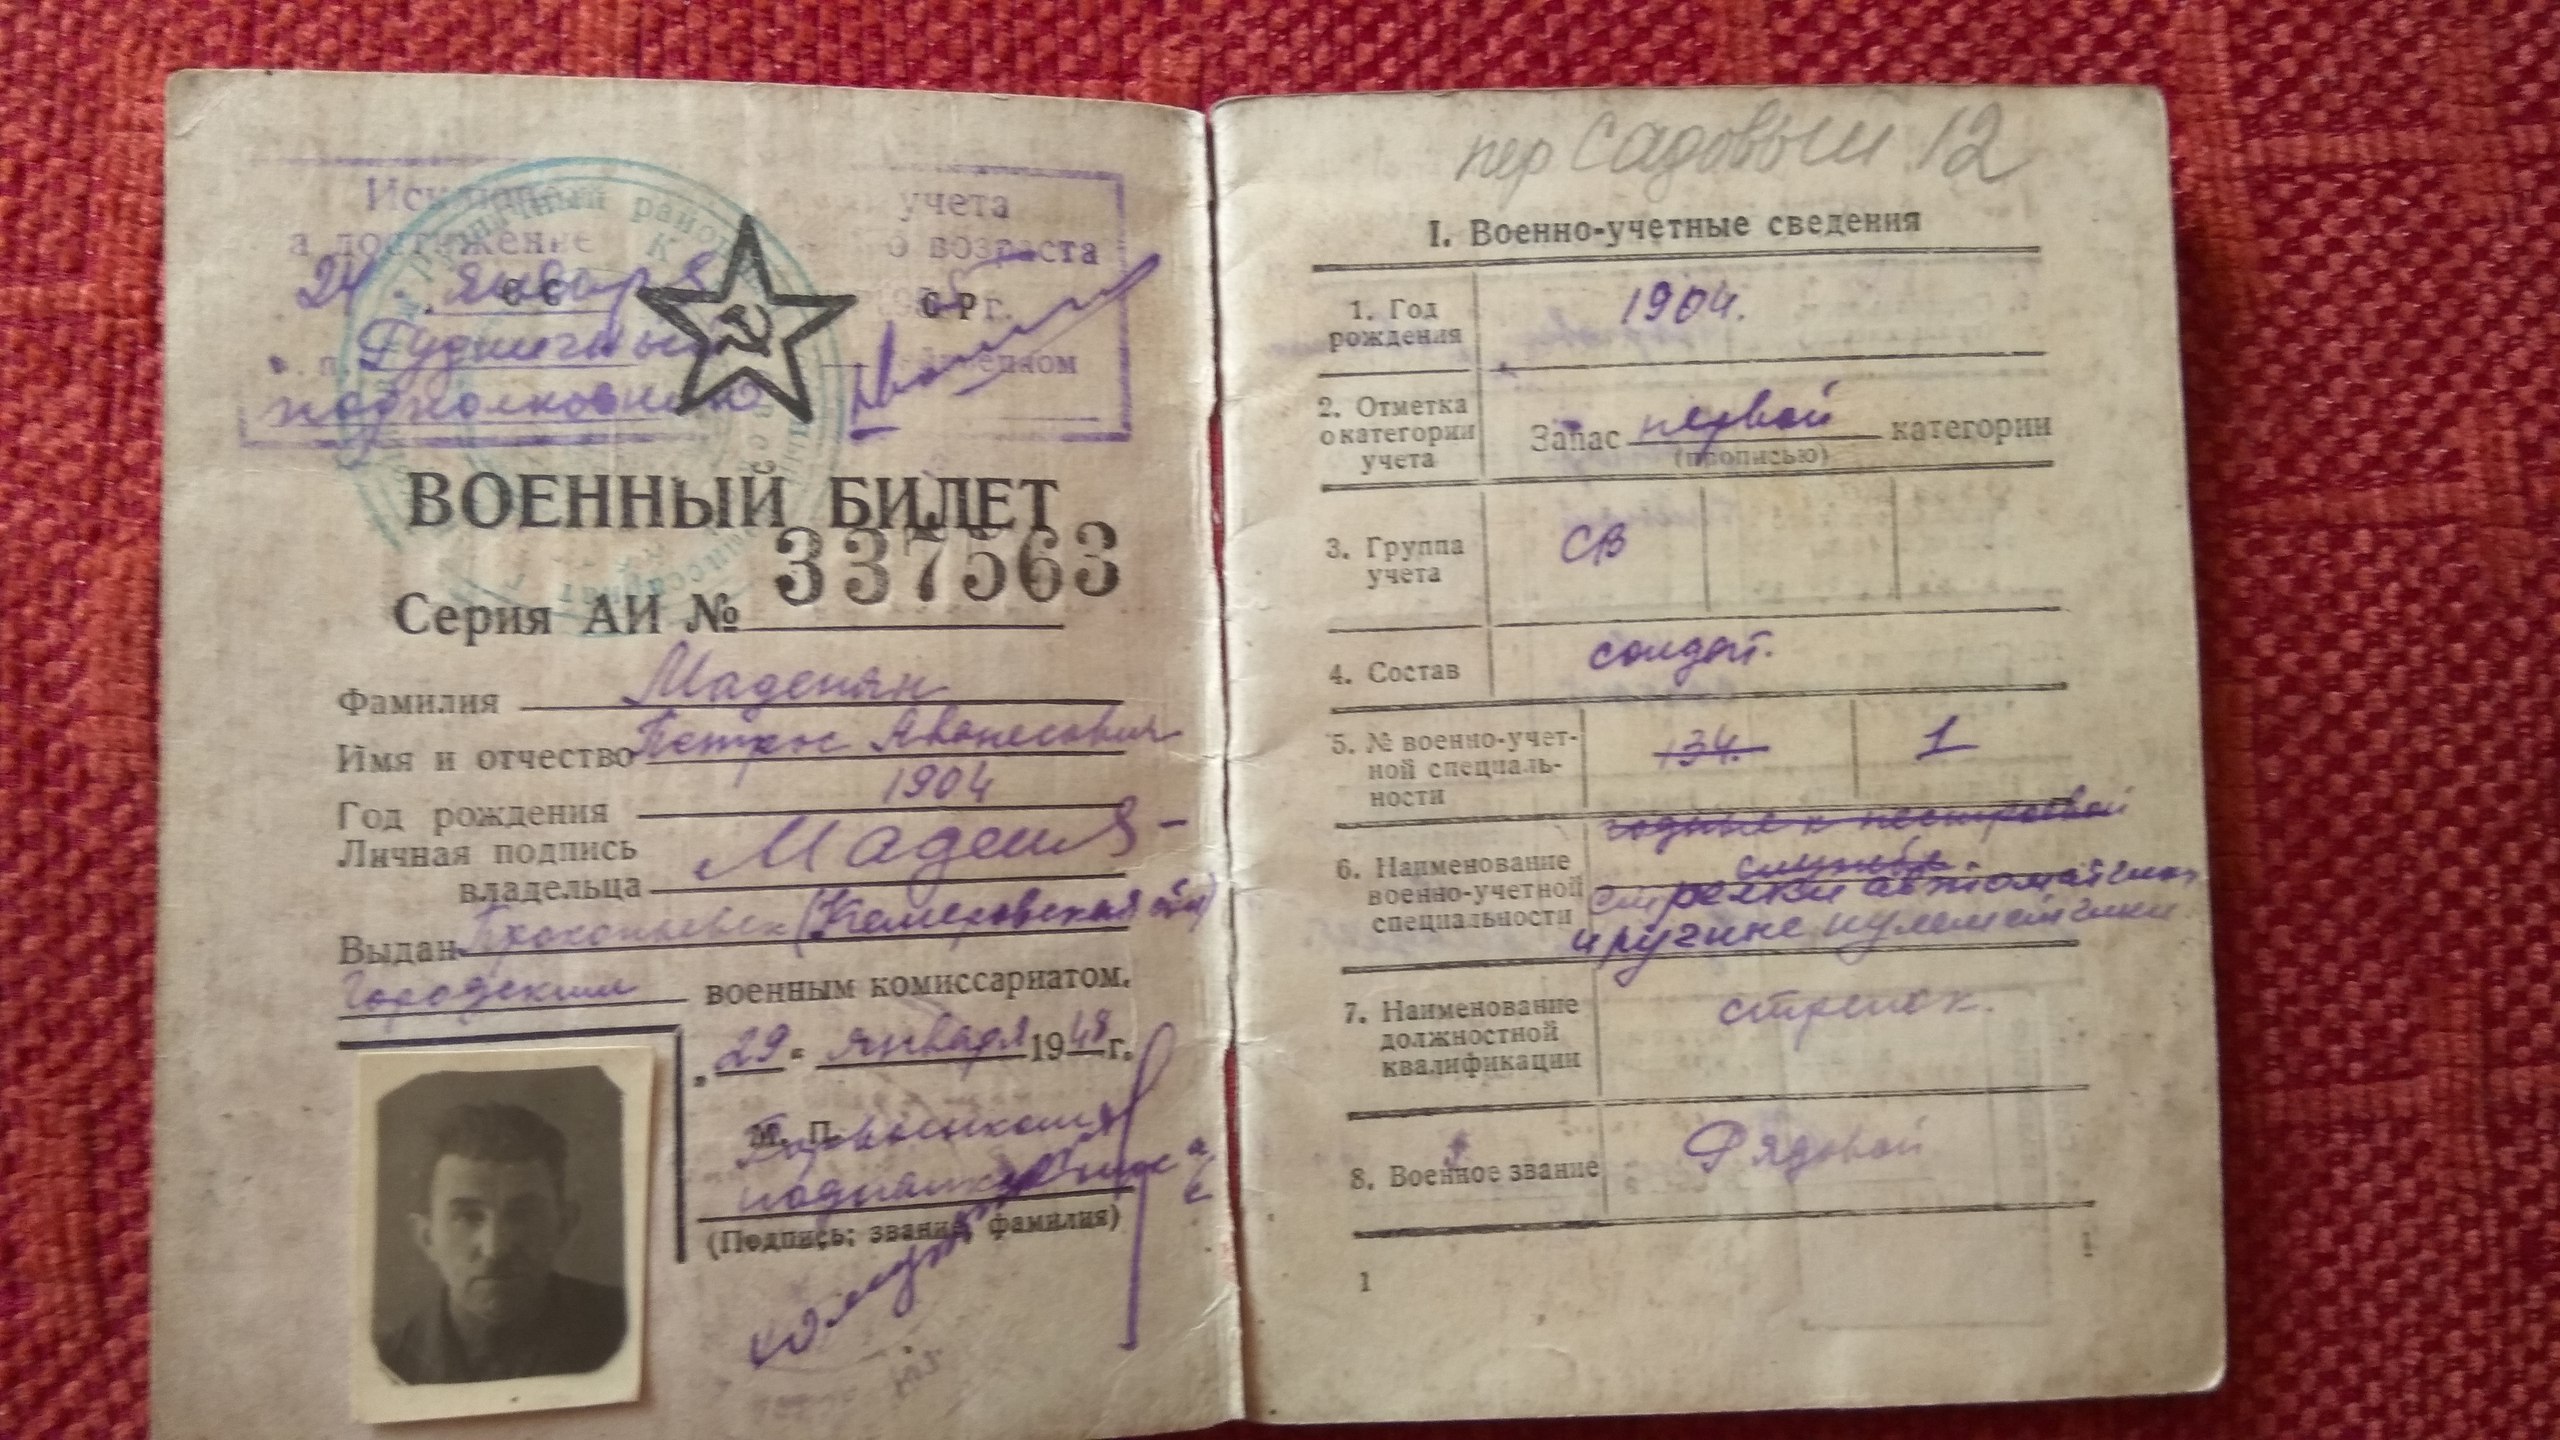 учета
а достижение о возраста
24 января г.
СС СР
Рудничный
подполковник
ВОЕННЫЙ БИЛЕТ
Серия АИ № 337563
Фамилия Маденян
Имя и отчество Петрос Аванесович
Год рождения 1904
Личная подпись
владельца
Выдан Прокопьевск (Кемеровская обл)
Городским военным комиссариатом.
„29" января 1948 г.
М. П.
(Подпись; звание, фамилия)
пер Садовый 12
I. Военно-учетные сведения
1. Год
рождения
1904.
2. Отметка
о категории
учета
Запас первой категории
(прописью)
3. Группа
учета
СВ
4. Состав
солдат.
5. № военно-учет-
ной специаль-
ности
134. 1
6. Наименование
военно-учетной
специальности
годные к нестроевой
службе
стрелки автоматчики
и ручные пулеметчики
7. Наименование
должностной
квалификации
стрелок.
8. Военное звание
Рядовой
1